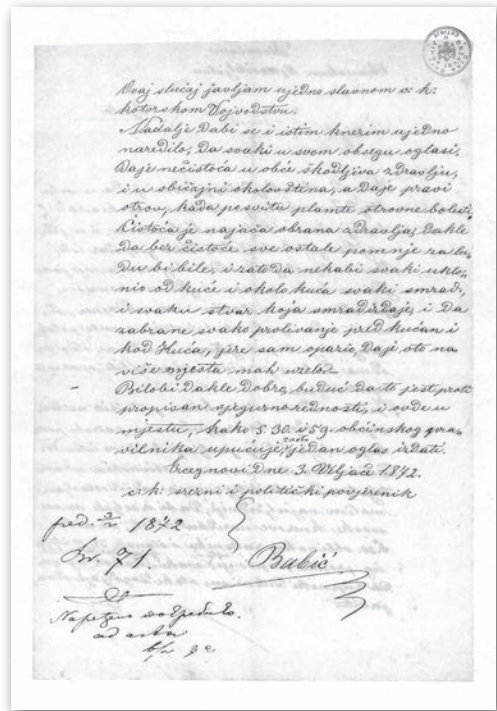 Ovaj slučaj javljam ujedno slavnom c: k:
kotorskom Vojvodstvu.
Nadalje dabi se i istim knezim ujedno
naredilo, da svaki u svom obsegu oglasi,
daje nečistoća u obće škodljiva zdravlju,
i u običajni okolovština, a daje pravi
otrov, kada po svitu plamte otrovne bolesti,
Čistoća je najača obrana zdravlja, dakle
da bez čistoće sve ostale pomnje zalu-
du bi bile, i zato da nekabi svaki uklo-
nio od kuće i okolo kuća svaki smrad,
i svaku stvar koja smrad izdaje, i da
zabrane svako prolivanje pred kućan i
kod kuća, jere sam opazio, daje oto na
više mjesta mah uzelo.
Bilobi dakle dobro, buduć da to jest proti
propisan sjegurnorednosti, i ovde u
mjestu, kako §. 30. i 59. obćinskog pra-
vilnika upućuje, zasto jedan oglas izdati.
Ercegnovi dne 3. Veljače 1872.
c: k: srezni i politički povjerenik
Babić
pred. 3/2 1872
Br. 71.
ad acta